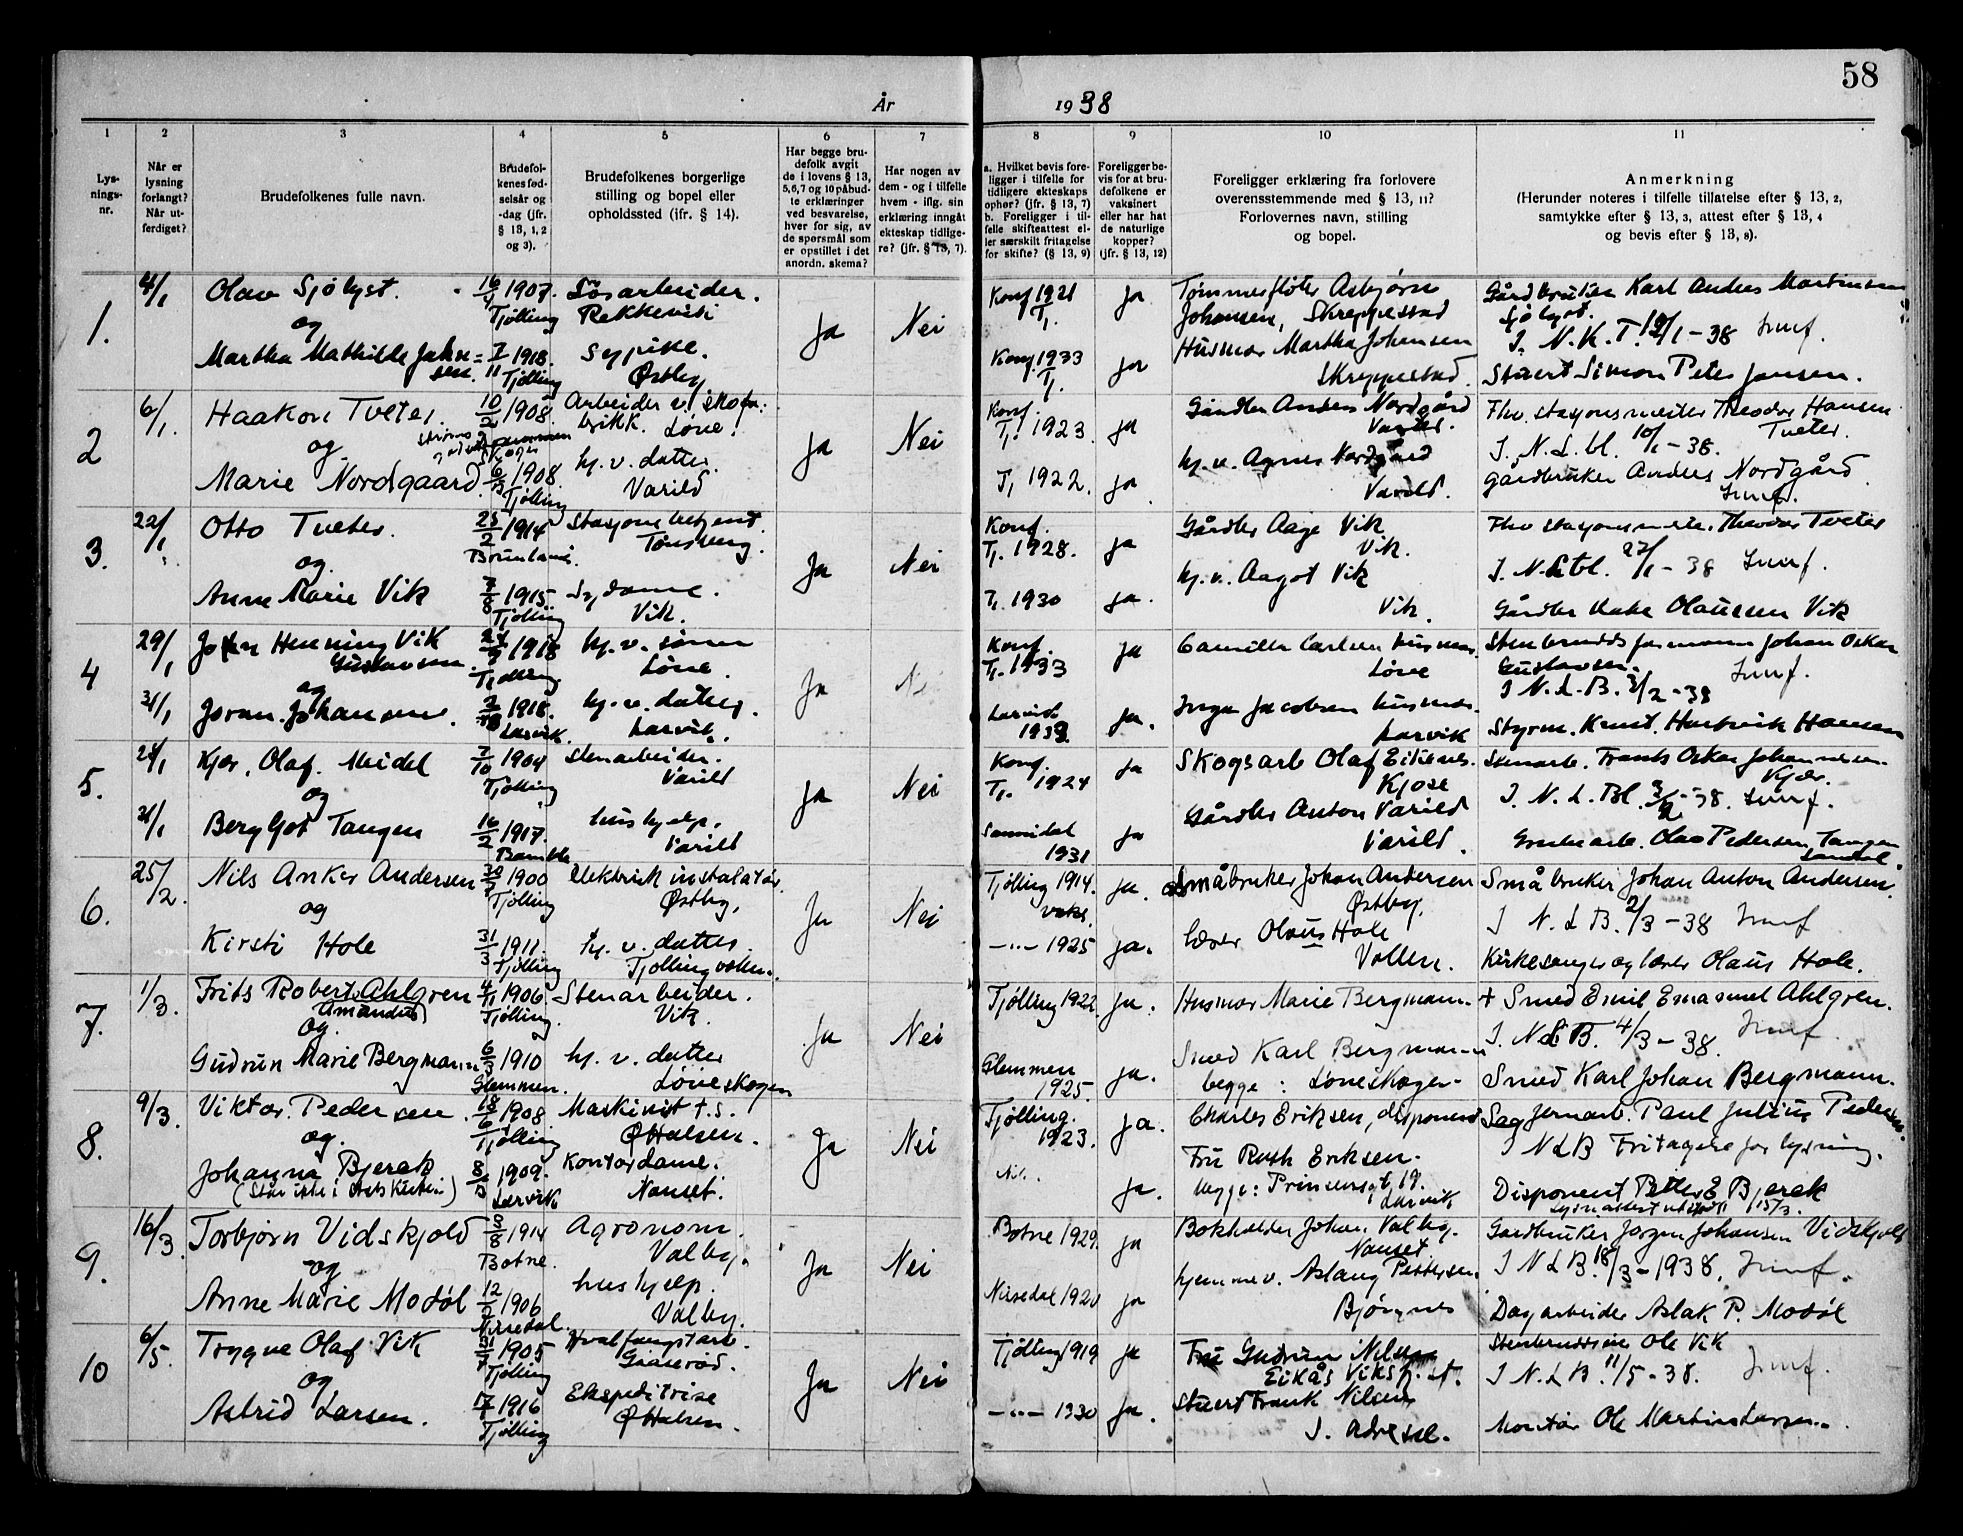 58
År 1938
1 2 3 4 5 6 7 8 9 10 11
Lys-
nings-
nr.
Når er
lysning
forlangt?
Når ut-
ferdiget?
Brudefolkenes fulle navn.
Brudefol-
kenes fød-
selsår og
-dag (jfr.
§ 13, 1, 2
og 3).
Brudefolkenes borgerlige
stilling og bopel eller
opholdssted (ifr. § 14).
Har begge bru-
defolk avgit
de i lovens § 13,
5,6,7 og 10 påbud-
te erklæringer
ved besvarelse,
hver for sig, av
de spørsmål som
er opstillet i det
anordn. skema?
Har nogen av
dem - og i tilfelle
hvem - iflg. sin
erklæring inngåt
ekteskap tidlige-
re? (jfr. § 13, 7).
a. Hvilket bevis fore-
ligger i tilfelle for
tidligere ekteskaps
ophør? (jfr. § 13, 7)
b. Foreligger i til-
felle skifteattest el-
ler særskilt fritagelse
for skifte? (§ 13, 9)
Foreligger be-
vis for at bru-
defolkene er
vaksinert
eller har hat
de naturlige
kopper?
(jfr. § 13, 12)
Foreligger erklæring fra forlovere
overensstemmende med § 13, 11?
Forlovernes navn, stilling
og bopel.
Anmerkning
(Herunder noteres i tilfelle tillatelse efter § 13, 2,
samtykke efter § 13, 3, attest efter § 13, 4
og bevis efter § 13, 8).
1. 4/1 Olav Sjølyst. 16/4 1907. Tjølling Løsarbeider. Rekkevik
og
Martha Mathilde Johan=
sen. 7/11 1918. Tjølling Sypike. Østby
Ja Nei
Konf 1921 Tj. ja Tømmerfløter Asbjørn
Johansen, Skreppestad
Konf. 1933 Tj. ja Husmor Martha Johansen
Skreppestad.
Gårdbruker Karl Anders Martinsen
Sjølyst.
I. N. K. T. 19/1 - 38
Stuert Simon Peter Jansen.
2 6/1. Haakon Tveter. 10/2 1908 Arbeider v/ skofa-
brikk. Løve.
og
Marie Nordgaard. 1908. Tjølling hj. v. datter. Varild
Ja Nei
Konf. Tj. 1923. ja Gårdbr Anders Nordgård
Varild.
Tj 1922. ja hj. v. Agnes Nordgård
Varild.
Fhv. stasjonsmester Theodor Hansen
Tveter.
I. N. L. bl. 10/1 - 38.
gårdbruker Anders Nordgård
3. 22/1 Otto Tveter. 25/2 1914 Brunlanes. Stasjonsbetjent. Tønsberg.
og.
Anne Marie Vik 7/8 1915. Tjølling Sydame. Vik.
Ja Nei
Konf. Tj. 1928. ja Gårdbr Aage Vik
Vik.
Tj. 1930 ja. hj. v. Aagot Vik
Vik.
Fhv stasjonsmester. Theodor Tveter
I. N. L bl. 27/1 - 38
Gårdbr Olaussen Vik
4 29/1 John Henning Vik
Gustavsen. 1918 Tjølling hj. v. sønn Løve.
og
31/1 Joran. Johansen. 1918. Larvik. hj. v. datter. Larvik.
Ja Nei
Konf. Tj. 1933 ja Camilla Carlsen husmor.
Løve
Larvik 1932. ja. Inga Jacobsen husmor
Larvik
Stenbruddsformann Johan Oskar
Gustavsen.
I N. L. B. 3/2 - 38
Styrm. Knut. Hansen
5. 28/1 Kjær, Olaf. Meidel 7/10 1904 Tjølling Stenarbeider. Varild
og
31/1 Bergljot Tangen 16/2 1917. Bamble hushjelp. Varild
Ja Nei
Konf. Tj. 1924 ja Skogsarb Olaf Eikenes.
Kjose
Sannidal 1931 ja Gårdbr Anton Varild
Varild.
Stenarb. Frants Oskar Johannesen
Kjær.
I. N. L. Bl. 3/2 - 38.
Grubearb. Olav Pedersen Tangen
Sannidal.
6. 25/2. Nils Anker Andersen 1900 Tjølling Elektrisk instalatør. Østby.
og
Kirsti Hole 31/3 1911. Tjølling hj. v. datter. Tjøllingvollen.
Ja Nei
Tjølling 1914. ja. Småbruker Johan Andersen
Østby.
-"- 1925 ja. Lærer Olaus Hole
Vollen.
Småbruker Johan Anton Andersen
I N. L B. 2/3 - 38
Kirkesanger og lærer Olaus Hole.
7. 1/3. Frits Robert Ahlgren
(Amandus) 1906 Tjølling. Stenarbeider. Vik.
og.
Gudrun Marie Bergmann 6/3 1910 Glemmen. hj. v. datter Løveskogen
Ja Nei
Tjølling 1922. ja. Husmor Marie Bergmann.
Glemmen 1925. ja. Smed Karl Bergmann
begge: Løveskogen.
+ Smed Emil Emanuel Ahlgren.
I. N L B. 4/3 - 38.
Smed Karl Johan Bergmann.
8. 9/3. Viktor. Pedersen. 18/6 1908 Tjølling Maskinist t.s. Ø Halsen.
og.
Johanna Bjerek
(Står ikke i Stats Kirken) 1909. Larvik Kontordame. Nanset.
Ja Nei
Tjølling. 1923. ja. Charles Eriksen, disponent
ja. Fru Ruth Eriksen.
begge: Prinsensgt, 19. Larvik
Sagformarb. Paul Julius Pedersen.
I N L B Fritagelse for lysning.
Disponent Bjerek
15/3.
9. 16/3. Torbjørn Vidskjold 8/8 1914 Botne. Agronom. Valby.
og
Anne Marie Modøl 1906 Nissedal. hushjelp. Valby.
Ja Nei
Botne 1929. ja Bokholder Johan Valby.
Nanset
Nissedal 1920 ja hjemmev. Aslaug Pettersen.
Bjørgnes
Gårdbruker Jørgen Johansen Vidskjold
I N L B. 18/3 - 1938.
Dagarbeider Aslak P. Modøl
10 6/5. Trygve Olaf Vik 1905 Tjølling Hvalfangstarb. Gåserød.
og
Astrid Larsen. 1916 Tjølling Ekspeditrise Ø Halsen.
Ja Nei
Tjølling 1919 ja Fru Gudrun Nilsen
Eikås Viks.
-"- 1930 ja. Stuert Frank Nilsen
s. adresse.
Ole Vik
I N. L B. 11/5 - 38.
Montør Ole Martin Larsen.